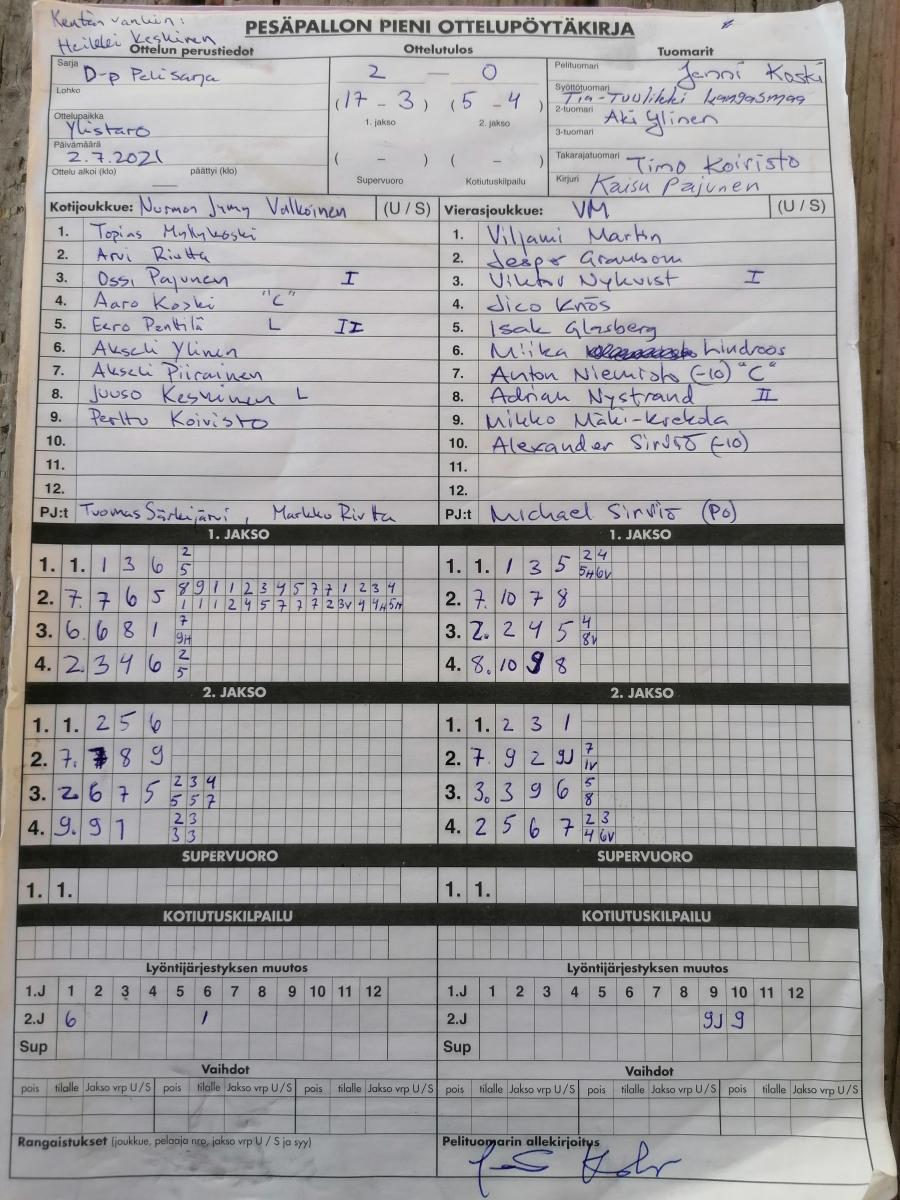 Kentän vanhin:
Heikki Keskinen
PESÄPALLON PIENI OTTELUPÖYTÄKIRJA
Ottelun perustiedot Ottelutulos Tuomarit
Sarja D-p Pelisarja
Lohko
Ottelupaikka Ylistaro
Päivämäärä 2.7.2021
Ottelu alkoi (klo) päättyi (klo)
2 — 0
(17 - 3) (5 - 4)
1. jakso 2. jakso
( - ) ( - )
Supervuoro Kotiutuskilpailu
Pelituomari Janni Koski
Syöttötuomari Tia-Tuulikki Kangasmaa
2-tuomari Aki Ylinen
3-tuomari
Takarajatuomari Timo Koivisto
Kirjuri Kaisu Pajunen
Kotijoukkue: Nurmon Jymy Valkoinen (U / S)
1. Topias Myllykoski
2. Arvi Riutta
3. Ossi Pajunen I
4. Aaro Koski "C"
5. Eero Penttilä L II
6. Akseli Ylinen
7. Akseli Piirainen
8. Juuso Keskinen L
9. Perttu Koivisto
10.
11.
12.
PJ:t Tuomas Särkijärvi, Markko Riutta
Vierasjoukkue: VM (U / S)
1. Viljami Martin
2. Jesper Granbom
3. Viktor Nykvist I
4. Jico Knös
5. Isak Glasberg
6. Miika Lindroos
7. Anton Niemistö (-10) "C"
8. Adrian Nystrand II
9. Mikko Mäki-Krekola
10. Alexander Sirviö (-10)
11.
12.
PJ:t Michael Sirviö (PO)
1. JAKSO
1. 1. 1 3 6 2
5
2. 7. 7 6 5 8 9 1 1 2 3 4 5 7 7 1 2 3 4
1 1 1 2 4 5 7 7 7 2 3V 4 4H 5H
3. 6. 6 8 1 7
9H
4. 2. 3 4 6 2
5
1. JAKSO
1. 1. 1 3 5 2 4
5H 6V
2. 7. 10 7 8
3. 2. 2 4 5 4
8V
4. 8. 10 9 8
2. JAKSO
1. 1. 2 5 6
2. 7. 7 8 9
3. 2. 6 7 5 2 3 4
5 5 7
4. 9. 9 1 2 3
3 3
2. JAKSO
1. 1. 2 3 1
2. 7. 9 2 9J 7
1V
3. 3. 3 9 6 5
8
4. 2 5 6 7 2 3
4 6V
SUPERVUORO SUPERVUORO
1. 1. 1. 1.
KOTIUTUSKILPAILU KOTIUTUSKILPAILU
Lyöntijärjestyksen muutos
1.J 1 2 3 4 5 6 7 8 9 10 11 12
2.J 6 1
Sup
Lyöntijärjestyksen muutos
1.J 1 2 3 4 5 6 7 8 9 10 11 12
2.J 9J 9
Sup
Vaihdot Vaihdot
pois tilalle Jakso vrp U / S pois tilalle Jakso vrp U / S pois tilalle Jakso vrp U / S
pois tilalle Jakso vrp U / S pois tilalle Jakso vrp U / S pois tilalle Jakso vrp U / S
Rangaistukset (joukkue, pelaaja nro, jakso vrp U / S ja syy)
Pelituomarin allekirjoitus